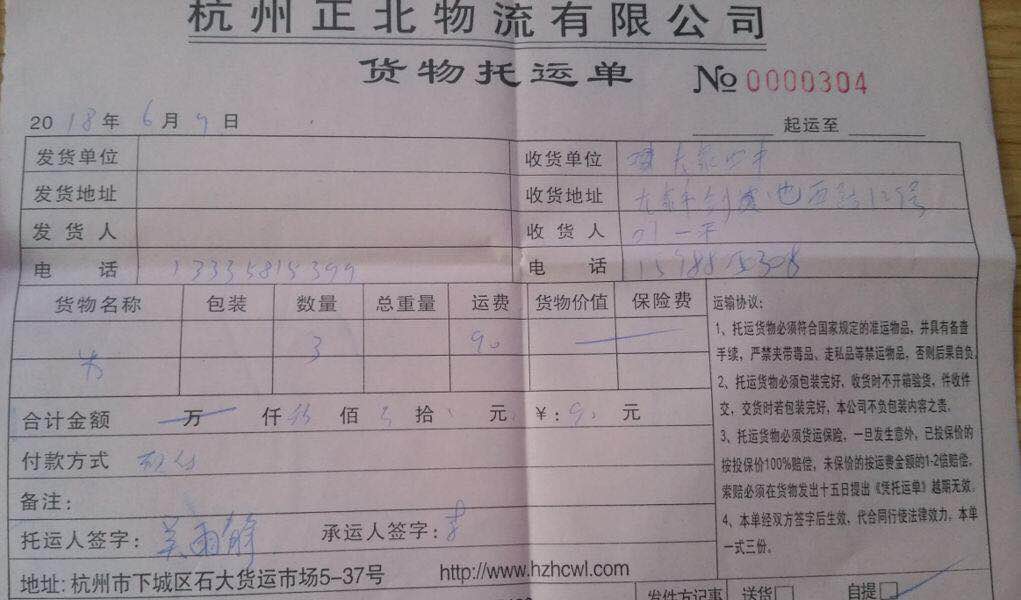 杭州正北物流有限公司
货物托运单 № 0000304
2018年6月9日 起运至
发货单位 收货单位
发货地址 收货地址
发货人 收货人
电话 13335815399 电话
货物名称 包装 数量 总重量 运费 货物价值 保险费
3 90
合计金额 万 仟 佰 拾 元 ¥:90元
付款方式
备注:
托运人签字: 承运人签字:李
地址:杭州市下城区石大货运市场5-37号 http://www.hzhcwl.com
运输协议:
1、托运货物必须符合国家规定的准运物品,并具有备查
手续,严禁夹带毒品、走私品等禁运物品,否则后果自负
2、托运货物必须包装完好,收货时不开箱验货,件收件
交,交货时若包装完好,本公司不负包装内容之责.
3、托运货物必须货运保险,一旦发生意外,已投保价的
按投保价100%赔偿,未保价的按运费金额的1-2倍赔偿,
索赔必须在货物发出十五日提出《凭托运单》越期无效.
4、本单经双方签字后生效,代合同行使法律效力,本单
一式三份.
发件方记事 送货□ 自提□